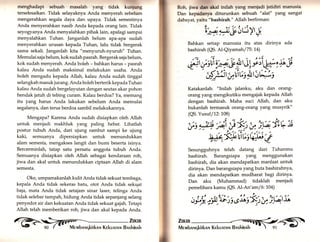 menghadapi sebuah masalah yang tidak kunjung
terselesaikan. Tidak selayaknya Anda menyerah sebelum
mengerahkan segala daya dan upaya. Tidak semestinya
Anda menyerahkan nasib Anda kepada orang lain. Tidak
seyogyanya Anda menyalahkan pihak lain, apalagi sampai
menyalahkan Tuhan. Janganlah belum apa-apa sudah
menyerahkan urusan kepada Tuhan, lalu tidak bergerak
sama sekali. Janganlah kita "menyuruh-nyuruh" Tuhan.
Memulai saja belum, kok sudah pasrah. Bergerak saja belum,
kok sudah menyerah. Anda boleh – bahkan harus – pasrah
kalau Anda sudah maksimal melakukan usaha. Anda
boleh mengadu kepada Allah, kalau Anda sudah tinggal
selangkah masuk jurang. Anda boleh berteriak kepada Tuhan
kalau Anda sudah bergelayutan dengan seutas akar pohon
hendak jatuh di tebing curam. Kalau berdoa? Ya, memang
itu yang harus Anda lakukan sebelum Anda memulai
segalanya, dan terus berdoa sambil melakukannya.
Mengapa? Karena Anda sudah disiapkan oleh Allah
untuk menjadi makhluk yang paling hebat. Lihatlah
postur tubuh Anda, dari ujung rambut sampai ke ujung
kaki, semuanya dipersiapkan untuk menundukkan
alam semesta, mengakses langit dan bumi beserta isinya.
Bercerminlah, tatap satu persatu anggota tubuh Anda.
Semuanya disiapkan oleh Allah sebagai kendaraan roh,
jiwa dan akal untuk memudahkan ciptaan Allah di alam
semesta.
Oke, umpamakanlah kulit Anda tidak sekuat tembaga,
kepala Anda tidak sekeras batu, otot Anda tidak sekuat
baja, mata Anda tidak setajam sinar laser, telinga Anda
tidak selebar tampah, hidung Anda tidak sepanjang selang
penyedot air dan kekuatan Anda tidak sekuat gajah. Tetapi
Allah telah memberikan roh, jiwa dan akal kepada Anda.
ZIKIR
90
MEMBANGKITKAN KEKUATAN BASHIRAH
Roh, jiwa dan akal inilah yang menjadi jatidiri manusia.
Dan kepadanya diturunkan sebuah "alat" yang sangat
dahsyat, yaitu "bashirah." Allah berfirman:
Bahkan setiap manusia itu atas dirinya ada
bashirah (QS. Al-Qiyamah/75: 14).
Katakanlah: "Inilah jalanku, aku dan orang-
orang yang mengikutiku mengajak kepada Allah
dengan bashirah. Maha suci Allah, dan aku
bukanlah termasuk orang-orang yang musyrik"
(QS. Yusuf/12: 108)
Sesungguhnya telah datang dari Tuhanmu
bashirah. Barangsiapa yang menggunakan
bashirah, dia akan mendapatkan manfaat untuk
dirinya. Dan barangsiapa yang buta bashirahnya,
dia akan mendapatkan mudharat bagi dirinya.
Dan aku (Muhammad) tidaklah menjadi
pemelihara kamu (QS. Al-An'am/6: 104)
ZIKIR
MEMBANGKITKAN KEKUATAN BASHIRAH
91